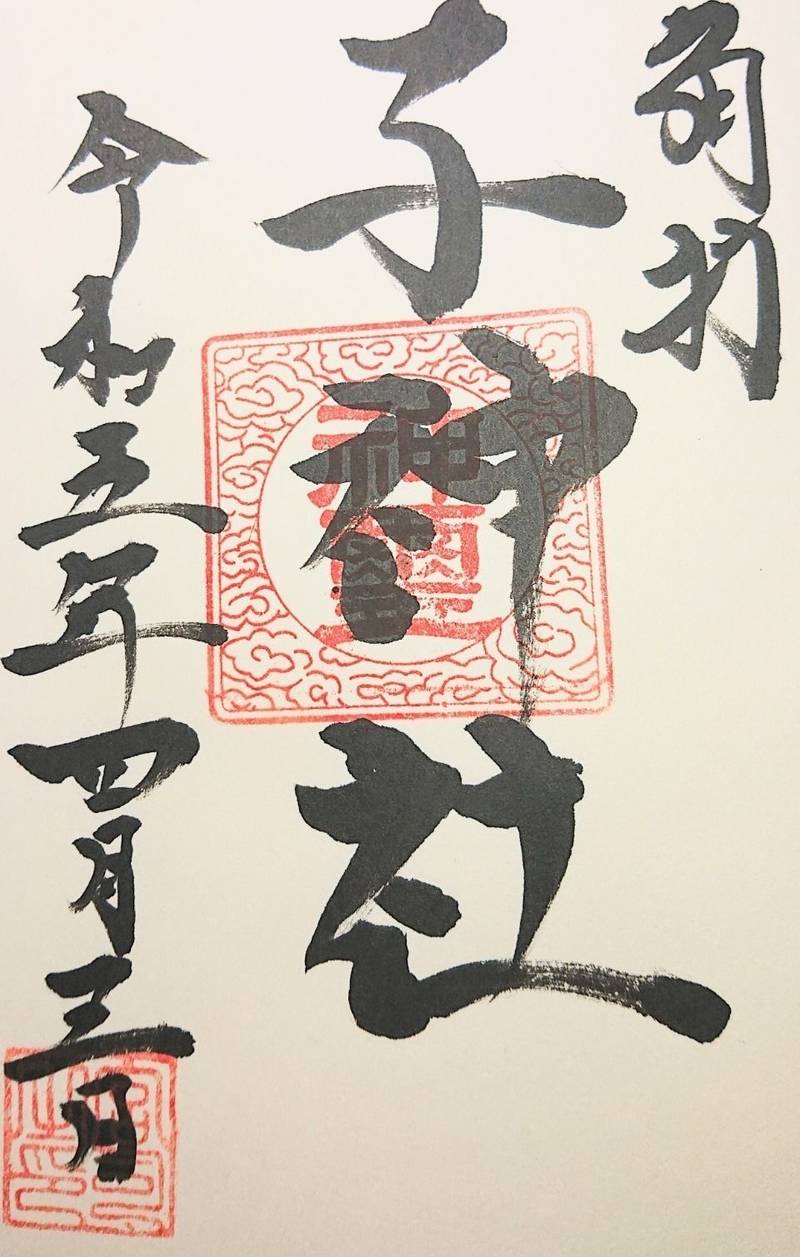 子神社
神璽
令和五年四月三日